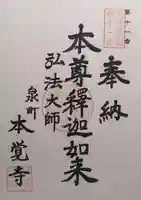 第十一番
奉納
本尊釋迦如来
弘法大師
泉町
本覚寺